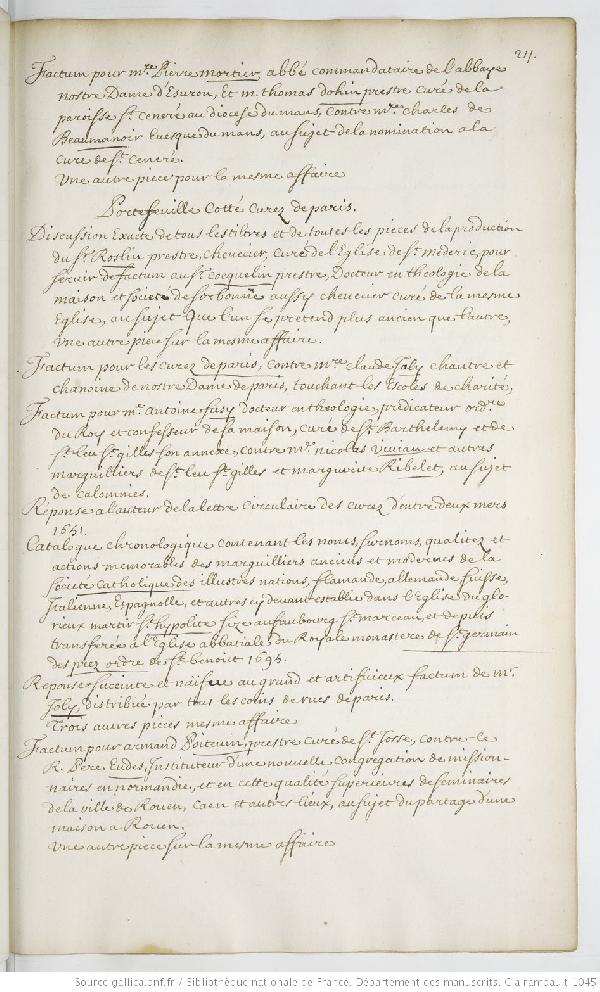 24.
Factum pour m.re Pierre mortier, abbé commandataire de l'abbaye
nostre Dame d'Esuron, et m. thomas dohin prestre curé de la
paroisse S.t cenéré au diocese du mans, contre m.re charles de
Beaumanoir Euesque du mans, au sujet de la nomination a la
cure de S.t Cenéré.
Vne autre piece pour la mesme affaire
Portefeuille Cotté Curez de paris.
Discussion Exacte de tous les tiltres et de toutes les pieces de la production
du S.r Roslin prestre, cheuecier, curé de l'Eglise de S.t mederic, pour
seruir de factum au S.r cocquelin prestre, Docteur en theologie de la
maison et société de sorbonne aussy cheuecier curé, de la mesme
Eglise, au sujet que l'un se pretend plus ancien que l'autre,
vne autre piece sur la mesme affaire.
Factum pour les curez de paris, contre m.re claude Joly chantre et
chanoine de nostre Dame de paris, touchant les Escoles de charité,
Factum pour m.r Antoine fusy docteur en theologie, predicateur ord.re
du Roy et confesseur de sa maison, curé de S.t Barthelemy et de
S.t leu S.t gilles son annexe, contre m.r nicolas viuiam et autres
marguilliers de S.t leu S.t gilles et marguerite Ribelet, au sujet
de calomnies.
Reponse a l'auteur de la lettre circulaire des curez d'entre deux mers
1651.
Catalogue chronologique contenant les noms, surnoms, qualitez et
actions memorables des marguilliers anciens et modernes de la
societé catholique des illustres nations, flamande, allemande suisse,
Italienne, Espagnolle, et autres cy deuant establie dans l'Eglise du glo-
rieux martir S.t hypolite size au faubourg S.t marceau, et depuis
transferée a l'Eglise abbatiale du Royale monastere de S.t germain
des prez ordre de S.t benoit 1695.
Reponse succinte et naifue au grand et artificieux factum de m.r
Joly, distribué par tous les coins de rues de paris.
Trois autres pieces mesme affaire
Factum pour armand Poiteuin, prestre curé de S.t Josse, contre le
R. Pere Eudes, Instituteur d'une nouuelle congregation de mission-
naires en normandie, et en cette qualité superieures de seminaires
de la ville de Rouen, caen et autres lieux, au sujet du partage d'une
maison a Rouen.
vne autre piece sur la mesme affaire
Source gallica.bnf.fr / Bibliothèque nationale de France. Département des manuscrits. Clairambault 1045